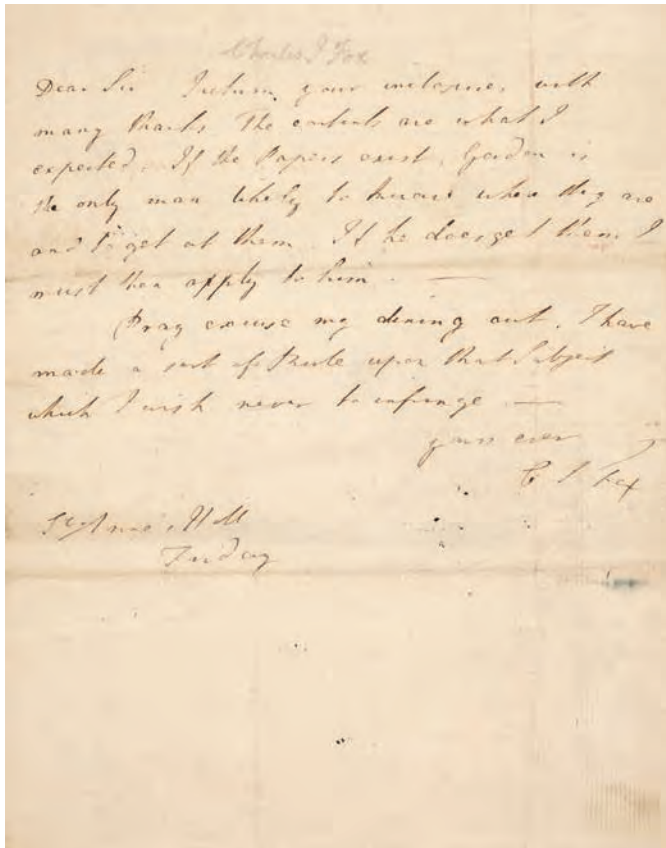 Charles J Fox
Dear Sir I return your inclosure, with
many thanks The contents are what I
expected. If the Papers exist, Gordon is
the only man likely to know where they are
and to get at them. If he does get them I
must then apply to him. —
Pray excuse my dining out. I have
made a sort of Rule upon that Subject
which I wish never to infringe —
yours ever
C J Fox
St Anne's Hill
Friday